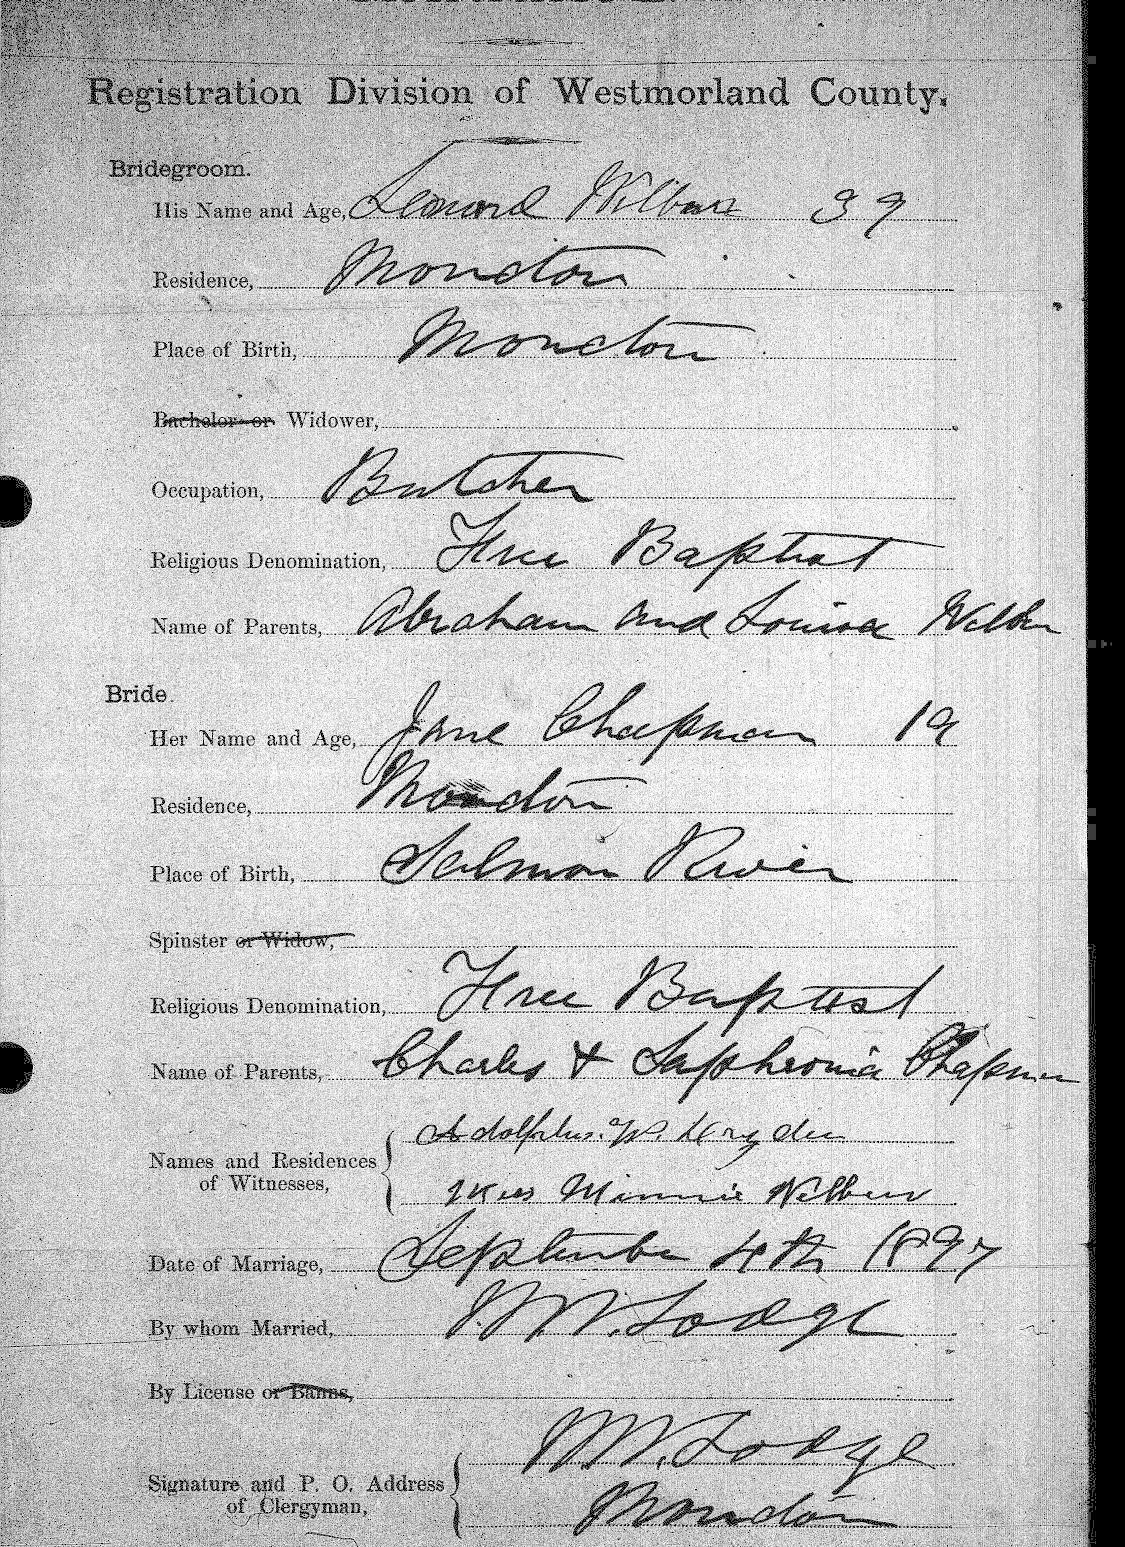 Registration Division of Westmorland County.
Bridegroom.
His Name and Age, Leonard Wilbur 39
Residence, Moncton
Place of Birth, Moncton
Bachelor or Widower,
Occupation, Butcher
Religious Denomination, Free Baptist
Name of Parents, Abraham and Louisa Wilbur
Bride.
Her Name and Age, Jane Chapman 19
Residence, Moncton
Place of Birth, Salmon River
Spinster or Widow,
Religious Denomination, Free Baptist
Name of Parents, Charles & Saphronia Chapman
Adolphus. W.
Names and Residences
of Witnesses,
Minnie Wilbur
Date of Marriage, September 4th 1897
By whom Married, W. W. Lodge
By License or Banns,
W. W. Lodge
Signature and P. O. Address
of Clergyman,
Moncton